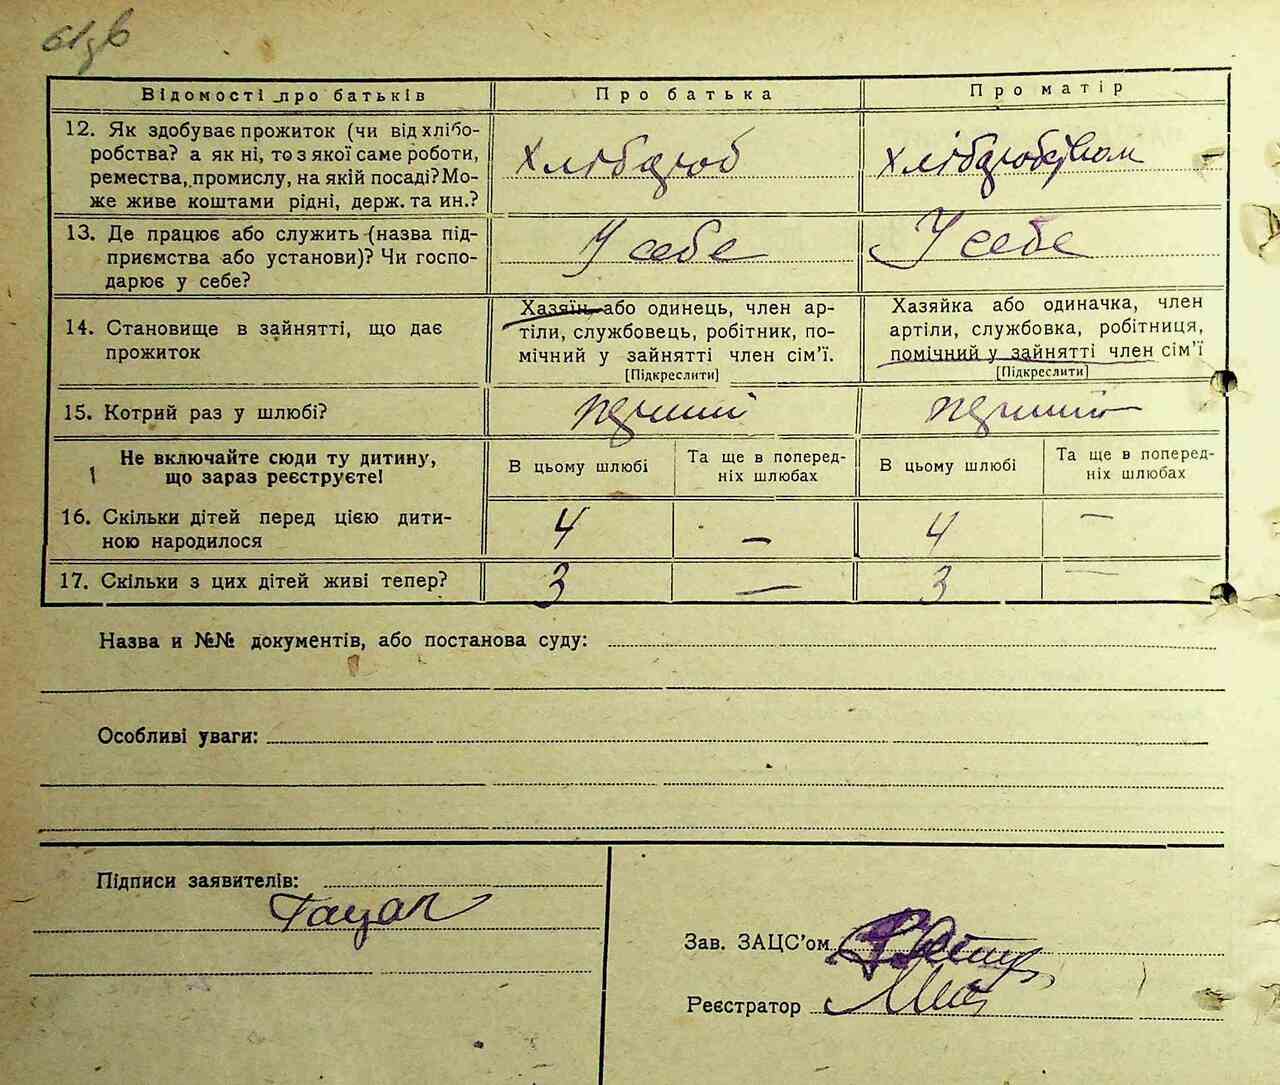 61зв
Відомості про батьків Про батька Про матір
12. Як здобуває прожиток (чи від хлібо-
робства? а як ні, то з якої саме роботи,
ремества, промислу, на якій посаді? Мо-
же живе коштами рідні, держ. та ин.?
Хлібороб
хліборобством
13. Де працює або служить (назва під-
приємства або установи)? Чи госпо-
дарює у себе?
У себе
У себе
14. Становище в зайнятті, що дає
прожиток
Хазяїн або одинець, член ар-
тіли, службовець, робітник, по-
мічний у зайнятті член сім'ї.
[Підкреслити]
Хазяйка або одиначка, член
артіли, службовка, робітниця,
помічний у зайнятті член сім'ї
[Підкреслити]
15. Котрий раз у шлюбі?
перший
перший
Не включайте сюди ту дитину,
що зараз реєструєте!
В цьому шлюбі
Та ще в поперед-
ніх шлюбах
В цьому шлюбі
Та ще в поперед-
ніх шлюбах
16. Скільки дітей перед цією дити-
ною народилося
4 — 4 —
17. Скільки з цих дітей живі тепер?
3 — 3 —
Назва и №№ документів, або постанова суду:
Особливі уваги:
Підписи заявителів:
Гацак
Зав. ЗАЦС'ом
Реєстратор